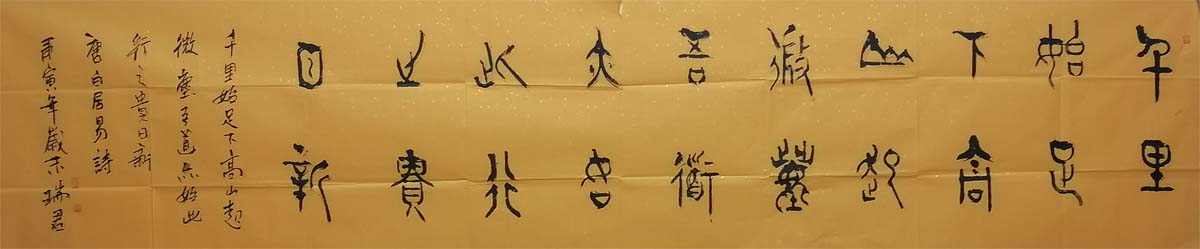 千里
始足
下高
山起
微塵
吾道
亦台
此行
之貴
日新
千里始足下高山起
微塵吾道亦始此
行之貴日新
唐白居易詩
寅年歲末瑞